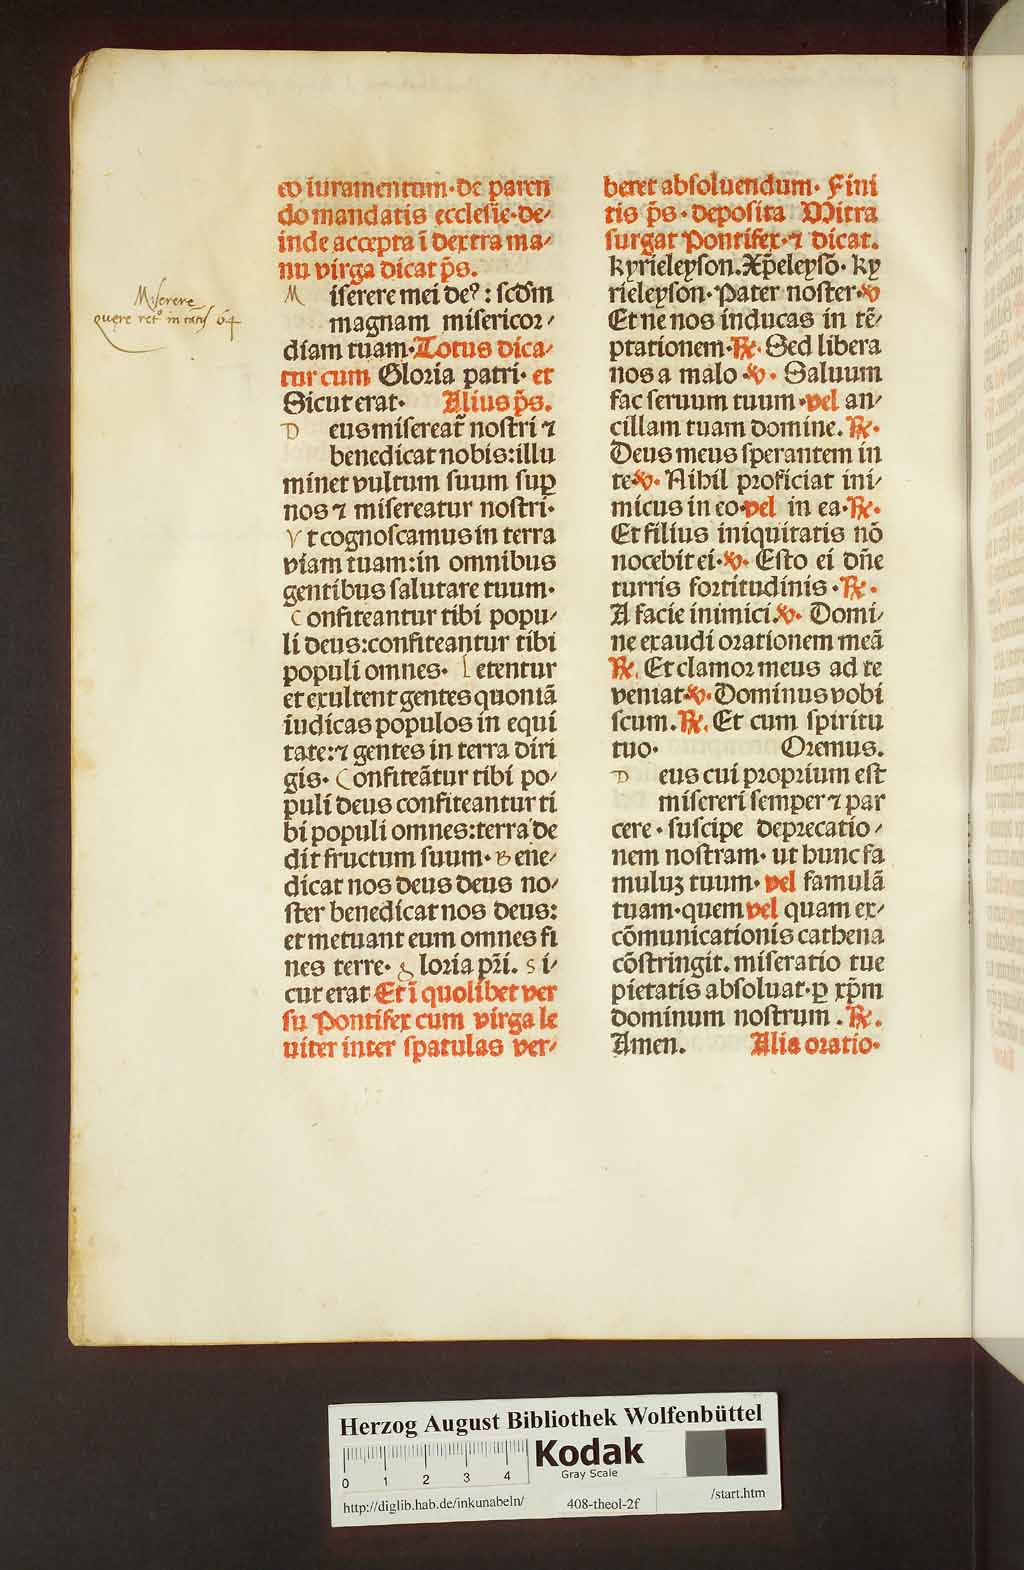 eo iuramentum·de paren
do mandatis ecclesie·de⸗
inde accepta ī dextra ma⸗
nu virga dicat p̄s.
M iserere mei deꝰ: scd̄m
magnam misericor⸗
diam tuam·Totus dica⸗
tur cum Gloria patri· et
Sicut erat· Alius p̄s.
D eus misereat᷑ nostri ⁊
benedicat nobis:illu
minet vultum suum suꝑ
nos ⁊ misereatur nostri·
V t cognoscamus in terra
viam tuam:in omnibus
gentibus salutare tuum·
C onfiteantur tibi popu⸗
li deus:confiteantur tibi
populi omnes· L etentur
et exultent gentes quoniā
iudicas populos in equi
tate:⁊ gentes in terra diri
gis· C onfiteātur tibi po⸗
puli deus confiteantur ti
bi populi omnes:terra de
dit fructum suum· B ene⸗
dicat nos deus deus no⸗
ster benedicat nos deus:
et metuant eum omnes fi
nes terre· g loria pr̄i. s i⸗
cut erat·Et ī quolibet ver
su Pontifex cum virga le
uiter inter spatulas ver⸗
Miserere
quere 64
beret absoluendum· Fini
tis p̄s· deposita Mitra
surgat Pontifex·⁊ dicat.
kyrieleyson.Xp̄eleysō· ky
rieleyson·Pater noster·℣
Et ne nos inducas in tē⸗
ptationem·℟· Sed libera
nos a malo·℣· Saluum
fac seruum tuum·vel an⸗
cillam tuam domine.℟·
Deus meus sperantem in
te·℣· Nihil proficiat ini⸗
micus in eo·vel in ea·℟·
Et filius iniquitatis nō
nocebit ei·℣· Esto ei dn̄e
turris fortitudinis·℟·
A facie inimici.℣· Domi⸗
ne exaudi orationem meā
℟. Et clamor meus ad te
veniat·℣·Dominus vobi
scum.℟. Et cum spiritu
tuo· Oremus.
D eus cui proprium est
misereri semper ⁊ par
cere· suscipe deprecatio⸗
nem nostram· ut hunc fa
muluꝫ tuum· vel famulā
tuam·quem vel quam ex⸗
cōmunicationis cathena
cōstringit.miseratio tue
pietatis absoluat·ꝑ xp̄m
dominum nostrum.℟.
Amen. Alia oratio·
Herzog August Bibliothek Wolfenbüttel
Kodak
Gray Scale
0 1 2 3 4
http://diglib.hab.de/inkunabeln/ 408-theol-2f /start.htm